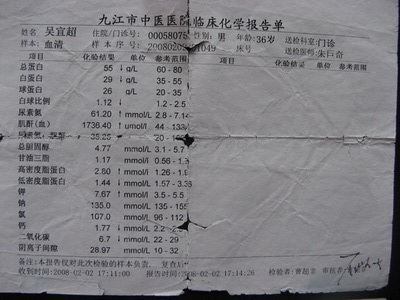 九江市中医医院临床化学报告单
姓名 吴宜超 住院/门诊号: 00058075 性别: 男 年龄: 36岁 送检科室: 门诊
样本: 血清 样本序号: 送检医师: 朱
床号
项目 化验结果 单位 参考范围 项目 化验结果 单位 参考范围
总蛋白 55 ↓ g/L 60 - 80
白蛋白 29 ↓ g/L 35 - 55
球蛋白 26 g/L 20 -
白球比例 1.12 ↓ 1.2 - 2.5
尿素氮 61.20 ↑ mmol/L 2.8 - 7.14
肌酐(血) 1736.40 ↑ umol/L 44 - 133
总胆固醇 4.77 mmol/L 3.1 - 5.7
甘油三脂 1.17 mmol/L 0.56 -
高密度脂蛋白 2.80 ↑ mmol/L 1.16 -
低密度脂蛋白 1.44 ↓ mmol/L 1.57 -
钾 7.67 ↑ mmol/L 3.5 - 5.5
钠 135.0 mmol/L 135 - 155
氯 107.0 mmol/L 96 - 112
钙 1.77 ↓ mmol/L
二氧化碳 6.7 ↓ mmol/L 22 - 29
阴离子间隙 28.97 ↑ mmol/L 10 - 32
备注: 本报告仅对此次检验的样本负责,
收到时间: 2008-02-02 17:11:00 报告时间: -02-02 17:14:26 检验者: 曹超